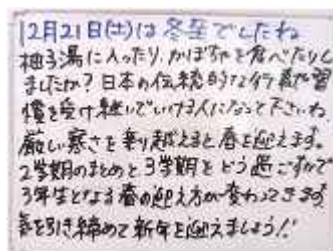 12月21日(土)は冬至でしたね
柚子湯に入ったり、かぼちゃを食べたりし
ましたか？日本の伝統的な行事や習
慣を受け継いでいける人になって下さいね
厳しい寒さを乗り越えると春を迎えます。
2学期のまとめと3学期をどう過ごすかで
3年生となる春の迎え方が変わってきます
気を引き締めて新年を迎えましょう！